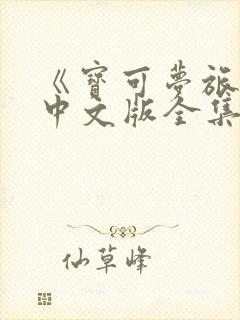 《寶可夢旅
中文版全集
仙草峰